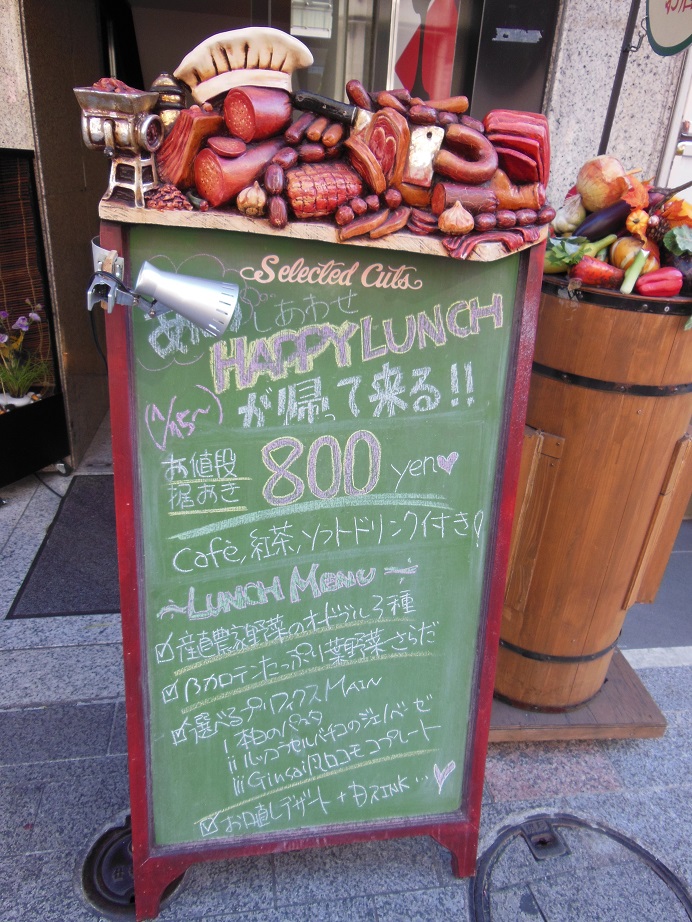 Selected Cuts
しあわせ
HAPPY LUNCH
が帰って来る!!
お値段
据おき
800 yen
Café, 紅茶, ソフトドリンク付き!
~LUNCH MENU~
産直農家野菜のオードブル3種
βカロテンたっぷり葉野菜さらだ
選べるプリフィクスMAIN
i 本日のパスタ
ii ルッコラセルバチコのジェノベーゼ
iii Ginsai風ロコモコプレート
お口直しデザート + DRINK...